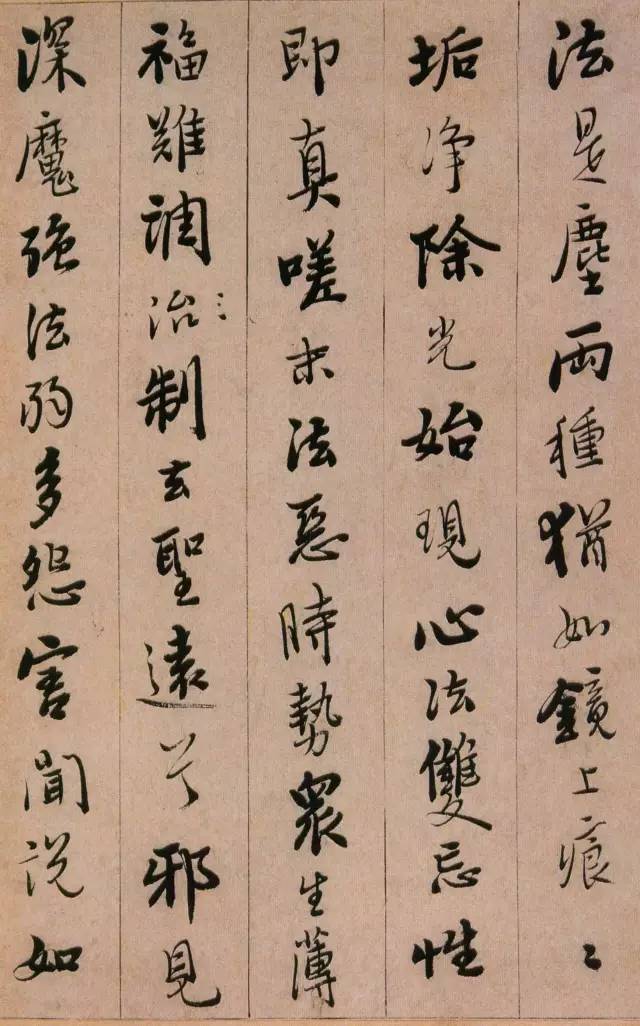 法是塵兩種猶如鏡上痕〻
垢净除光始現心法雙忘性
即真嗟末法惡時勢衆生薄
福難調治制去聖遠兮邪見
深魔強法弱多怨害聞說如